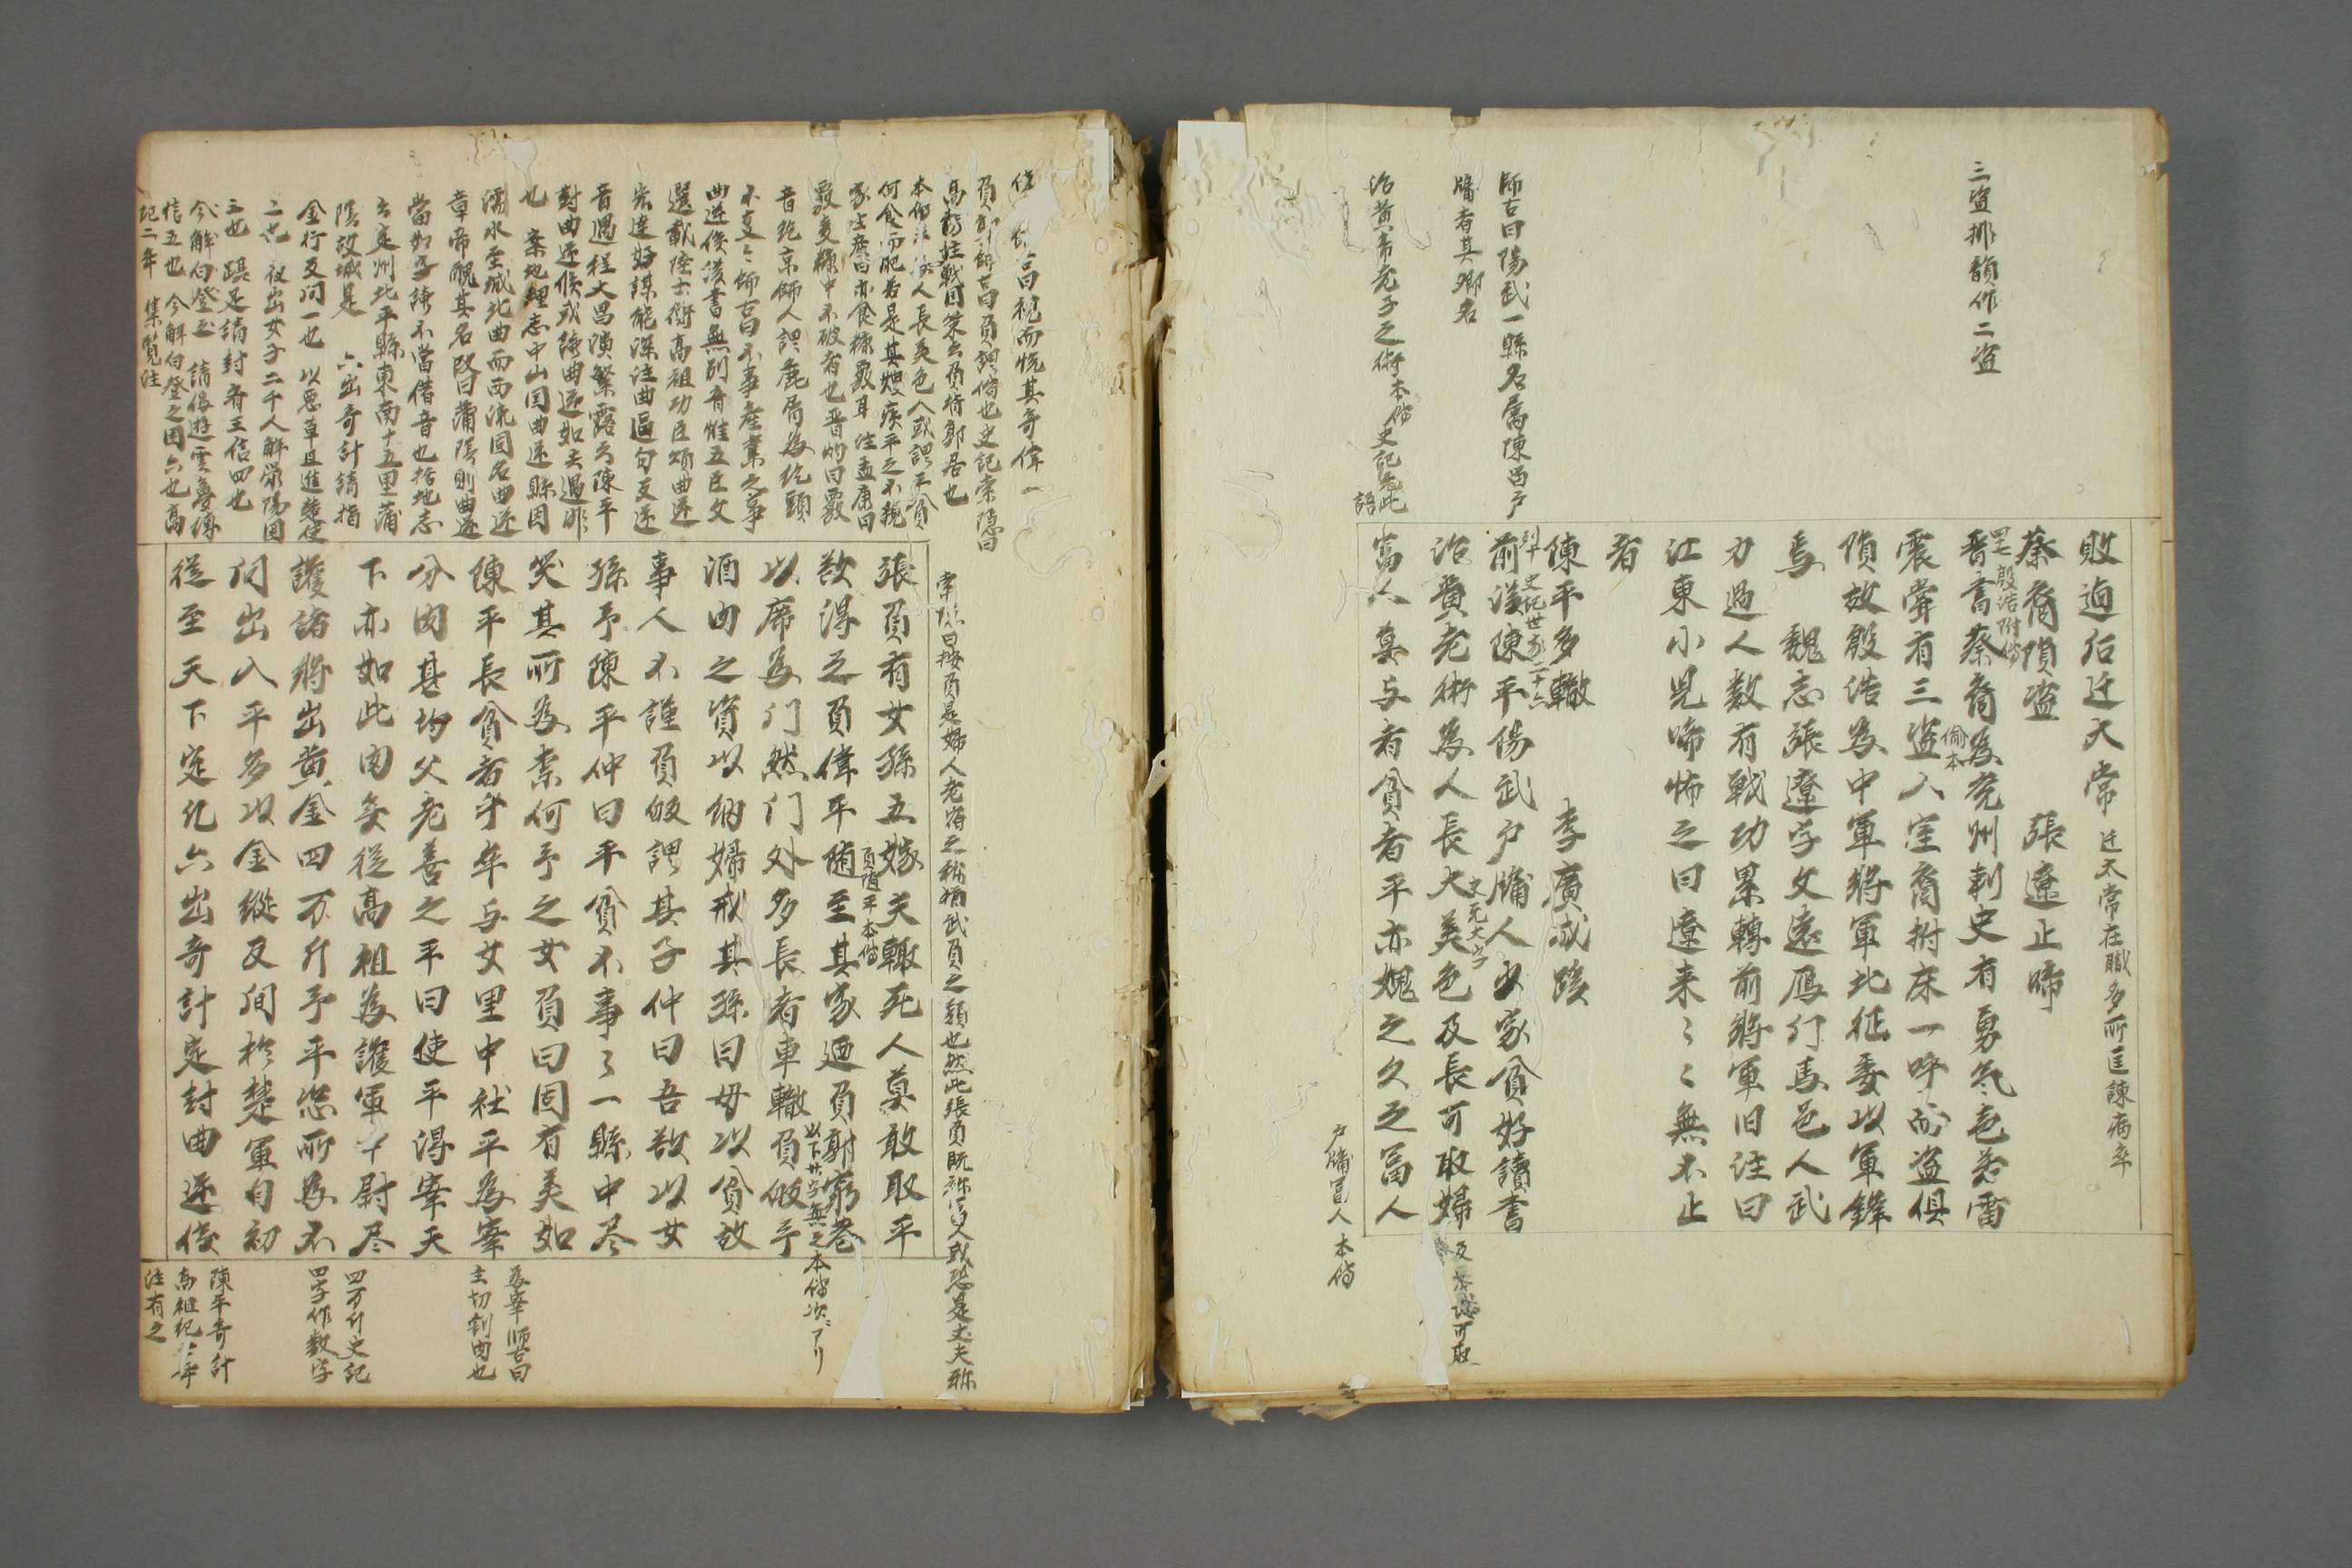 三盗排韻作二盗
敗迫后迁大常 迁太常在職多所匡諫病卒
蔡裔隕盗 張遼止啼
晋書蔡裔為兖州刺史有勇氣声若雷
四七 殷浩附傳
震嘗有三盗入室裔拊床一呼而盗俱
偷本
隕故殷浩為中軍将軍北征委以軍鋒
焉 魏志張遼字文遠鴈门馬邑人武
力過人数有戦功累轉前将軍旧注曰
江東小児啼怖之曰遼来〻〻無不止
者
師古曰陽武一縣名属陳留戸
牖者其郷名
陳平多轍 李廣成蹊
列十 史記世家二十六
前漢陳平陽武戸牖人少家貧好讀書
史无大字
治黄老術為人長大美色及長可取婦
治黄帝老子之術本傳史記无此
語
富人莫与者貧者平亦媿之久之富人
戸牖冨人本傳
負郭師古曰負謂偝也史記索隠曰
高誘注戦国策云負背郭居也
本傳
何食而肥若是其嫂疾平之不親
家生産曰亦食糠覈耳注孟康曰
覈麦糠中不破者也晋灼曰覈
音紇京師人謂麁屑為紇頭
不事〻師古曰不事産業之事
曲逆侯漢書無別音惟五臣文
選載陸士衡高祖功臣頌曲逆
宏達好謀能深注曲區句反逆
音遇程大昌演繁露云陳平
封曲逆侯或陣曲逆如去遇非
也 案地理志中山国曲逆縣因
濡水至城北曲而西流因名曲逆
章帝醜其名改曰蒲陰則曲逆
當如字讀不當借音也括地志
云定州北平縣東南十五里蒲
陰故城是 六出奇計請捐
金行反间一也 以悪草具進楚使
二也 夜出女子二千人解滎陽囲
三也 躡足請封齐王信四也
今解白登五 請偽遊雲夢縛
信五也 今解白登之囲六也高
記二年 集覧注
索隠曰按負是婦人老宿之称猶武負之類也然此張負既称富人或恐是丈夫称
張負有女孫五嫁夫輙死人莫敢取平
欲得之負偉平随至其家迺負郭窮巷
負随平本傳
以席為门然门外多長者車轍負仮予
以下廿字無之本傳次ニアリ
酒肉之資以納婦戒其孫曰毋以貧故
事人不謹負皈謂其子仲曰吾欲以女
孫予陳平仲曰平貧不事〻一縣中尽
笑其所為柰何予之女負曰固有美如
陳平長貧者乎卒与女里中社平為宰
分肉甚均父老善之平曰使平得宰天
下亦如此肉矣従高祖為護軍中尉尽
護諸将出黄金四万斤予平恣所為不
问出入平多以金縦反间於楚軍自初
従至天下定凡六出奇計定封曲逆侯
為宰師古曰
主切割肉也
四万斤史記
四字作数字
陳平奇計
注有之